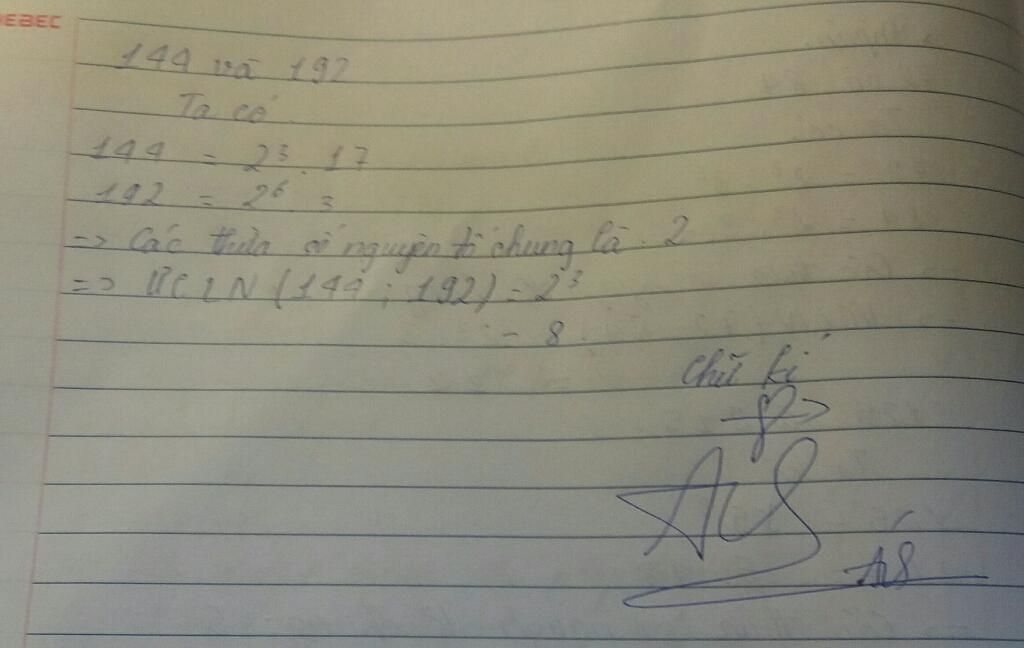 DEBEC
144 và 192
Ta có
144 = 2³. 17
192 = 2⁶. 3
=> Các thừa số nguyên tố chung là. 2
=> ƯCLN (144 ; 192) = 2³
= 8.
Chữ kí
AS
AS